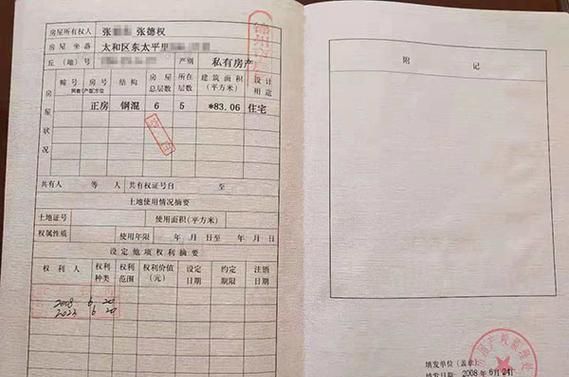 房屋所有权人 张 张德权
房屋坐落 太和区东太平里
丘（地）号 产别 私有房产
房屋状况
幢号 房号 结构 房屋总层数 所在层数 建筑面积（平方米） 设计用途
正房 钢混 6 5 *83.06 住宅
共有人 等 人 共有权证号自 至
土地使用情况摘要
土地证号 使用面积（平方米）
权属性质 使用年限 年 月 日至 年 月 日
设定他项权利摘要
权利人 权利种类 权利范围 权利价值（元） 设定日期 约定期限 注销日期
2008 6 20
6 20
附 记
填发单位（盖章）
填发日期：2008 年 6 月 24 日